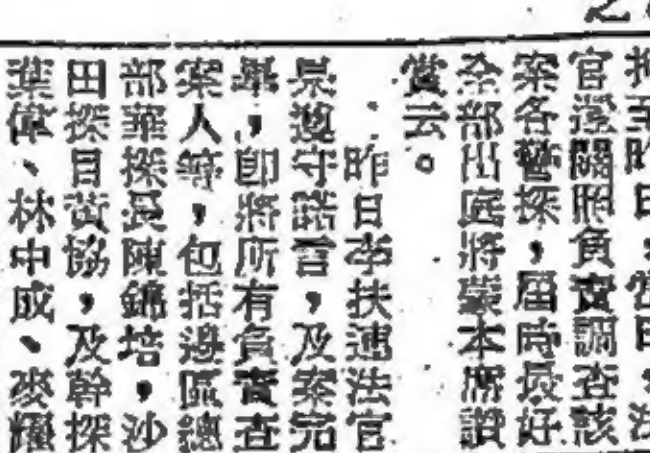 拘至昨日,當日,法
官逕關照負責調查該
案各警探,屆時最好
全部出庭將蒙本席讚
賞云。
昨日李扶連法官
果遵守諾言,及案完
畢,即將所有負責查
案人等,包括邊區總
部華探長陳錦培,沙
田探目黃協,及幹探
葉偉、林中成、麥耀